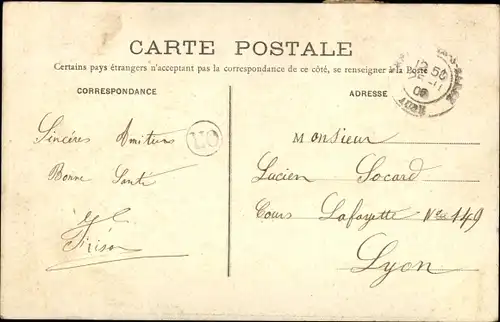 CARTE POSTALE
Certains pays étrangers n'acceptant pas la correspondance de ce côté, se renseigner à la Poste
CORRESPONDANCE
ADRESSE
Sincères Amitiés
Bonne Santé
Frison
UO
12 50
11
08
JURA
Monsieur
Lucien Socard
Cours Lafayette No 149
Lyon